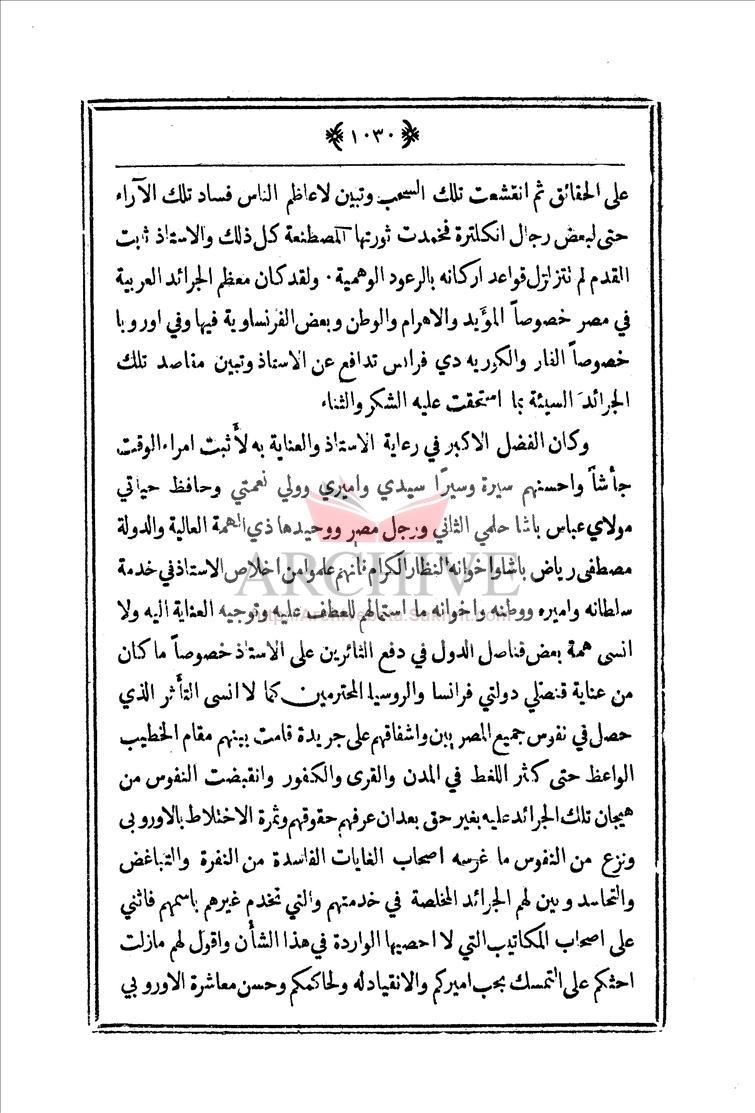 ١٠٣٠
على الحقائق ثم انقشعت تلك السحب وتبين لاعاظم الناس فساد تلك الآراء
حتى لبعض رجال انكلترة فخمدت ثورتها المصطنعة كل ذلك والاستاذ ثابت
القدم لم تتزلزل قواعد اركانه بالرعود الوهمية · ولقد كان معظم الجرائد العربية
في مصر خصوصاً المؤيد والاهرام والوطن وبعض الفرنساوية فيها وفي اوروبا
خصوصاً الفار والكوريه دي فرانس تدافع عن الاستاذ وتبين مقاصد تلك
الجرائد السيئة بما استحقت عليه الشكر والثناء
وكان الفضل الاكبر في رعاية الاستاذ والعناية به لأثبت امراء الوقت
جأشاً واحسنهم سيرة وسيرًا سيدي واميري وولي نعمتي وحافظ حياتي
مولاي عباس باشا حلمي الثاني ورجل مصر ووحيدها ذي الهمة العالية والدولة
مصطفى رياض باشا واخوانه النظار الكرام فانهم علموا من اخلاص الاستاذ في خدمة
سلطانه واميره ووطنه واخوانه ما استمالهم للعطف عليه وتوجيه العناية اليه ولا
انسى همة بعض قناصل الدول في دفع الثائرين على الاستاذ خصوصاً ما كان
من عناية قنصلي دولتي فرانسا والروسيا المحترمين كما لا انسى التأثر الذي
حصل في نفوس جميع المصريين واشفاقهم على جريدة قامت بينهم مقام الخطيب
الواعظ حتى كثر اللغط في المدن والقرى والكفور وانقبضت النفوس من
هيجان تلك الجرائد عليه بغير حق بعد ان عرفهم حقوقهم وثمرة الاختلاط بالاوروبي
ونزع من النفوس ما غرسه اصحاب الغايات الفاسدة من النفرة والتباغض
والتحاسد وبين لهم الجرائد المخلصة في خدمتهم والتي تخدم غيرهم باسمهم فاثني
على اصحاب المكاتيب التي لا احصيها الواردة في هذا الشأن واقول لهم مازلت
احثكم على التمسك بحب اميركم والانقياد له ولحاكمكم وحسن معاشرة الاوروبي
ARCHIVE